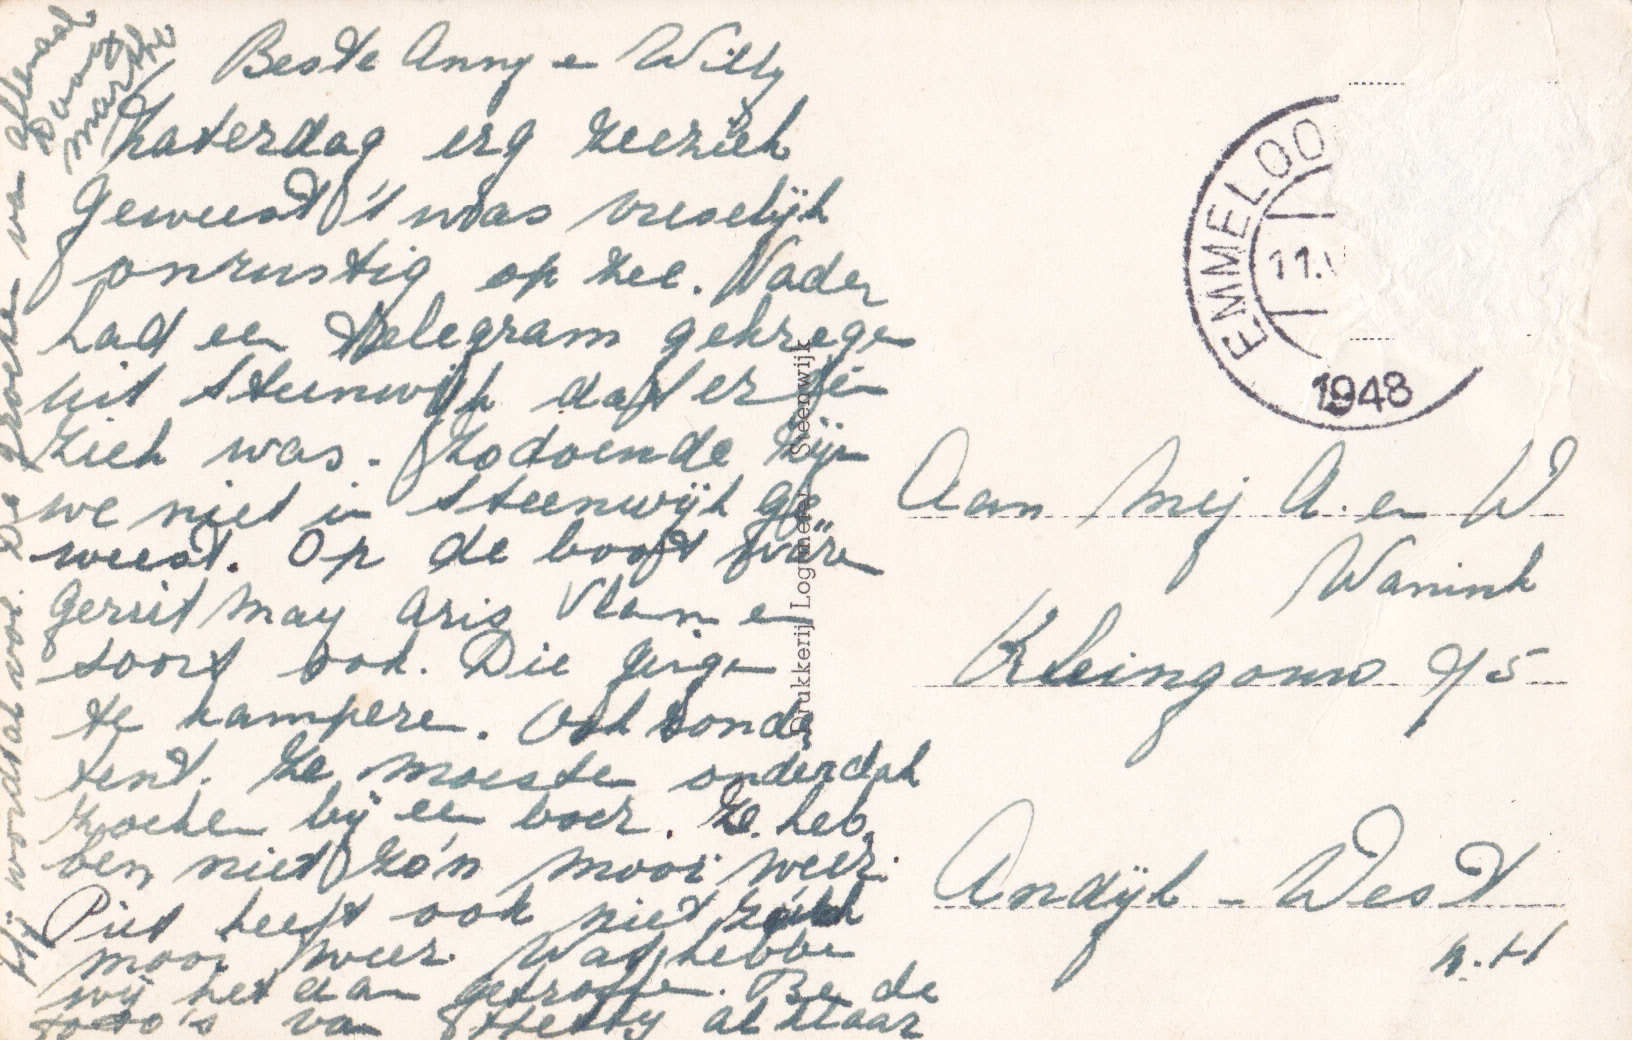 Beste Anny e Willy
Zaterdag erg zeeziek
geweest 't was vreselijk
onrustig op zee. Vader
had een telegram gekrege
uit Steenwijk dat er één
ziek was. Zodoende zijn
we niet in Steenwijk ge
weest. Op de boot ware
Gerrit May Aris Vlam en
soort ook. Die ginge
te kampere. Ook zonde
tent. Ze moeste onderdak
zoeke bij een boer. Ze heb
ben niet zo'n mooi weer.
Piet heeft ook niet
mooi weer. Wat hebbe
wij het dan getroffe. Be de
foto's van Hetty al klaar
Hij wordt al wat. De groeten van allemaal
Daart
Marthe
EMMELOO
11.
1948
Drukkerij Steenwijk
Aan Mej A. en W
Wanink
Kleingouw 95
Andijk - West
N.H